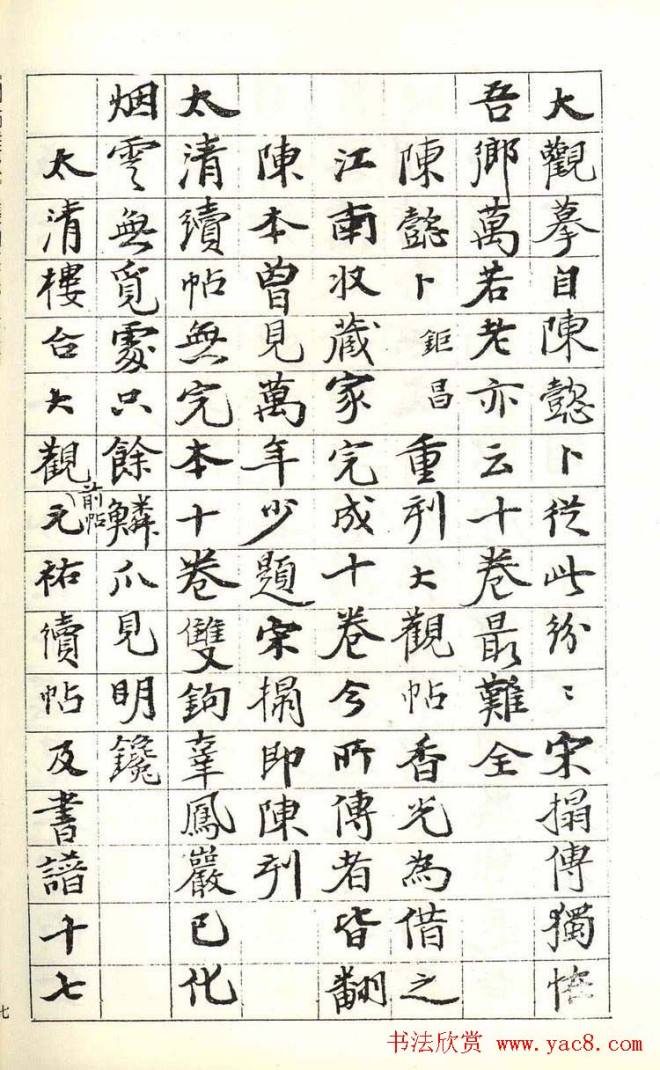 大觀摹自陳懿卜從此紛〻宋搨傳獨恠
吾鄉萬若老亦云十卷最難全
陳懿卜鉅昌重刊大觀帖香光為借之
江南収藏家完成十卷今所傳者皆翻
陳本曾見萬年少題宋搨即陳刊
太清續帖無完本十卷雙鉤韋鳳巖已化
烟雲無覓處只餘鱗爪見明鑱
太清樓合大觀前帖元祐續帖及書譜十七
七
书法欣赏 www.yac8.com